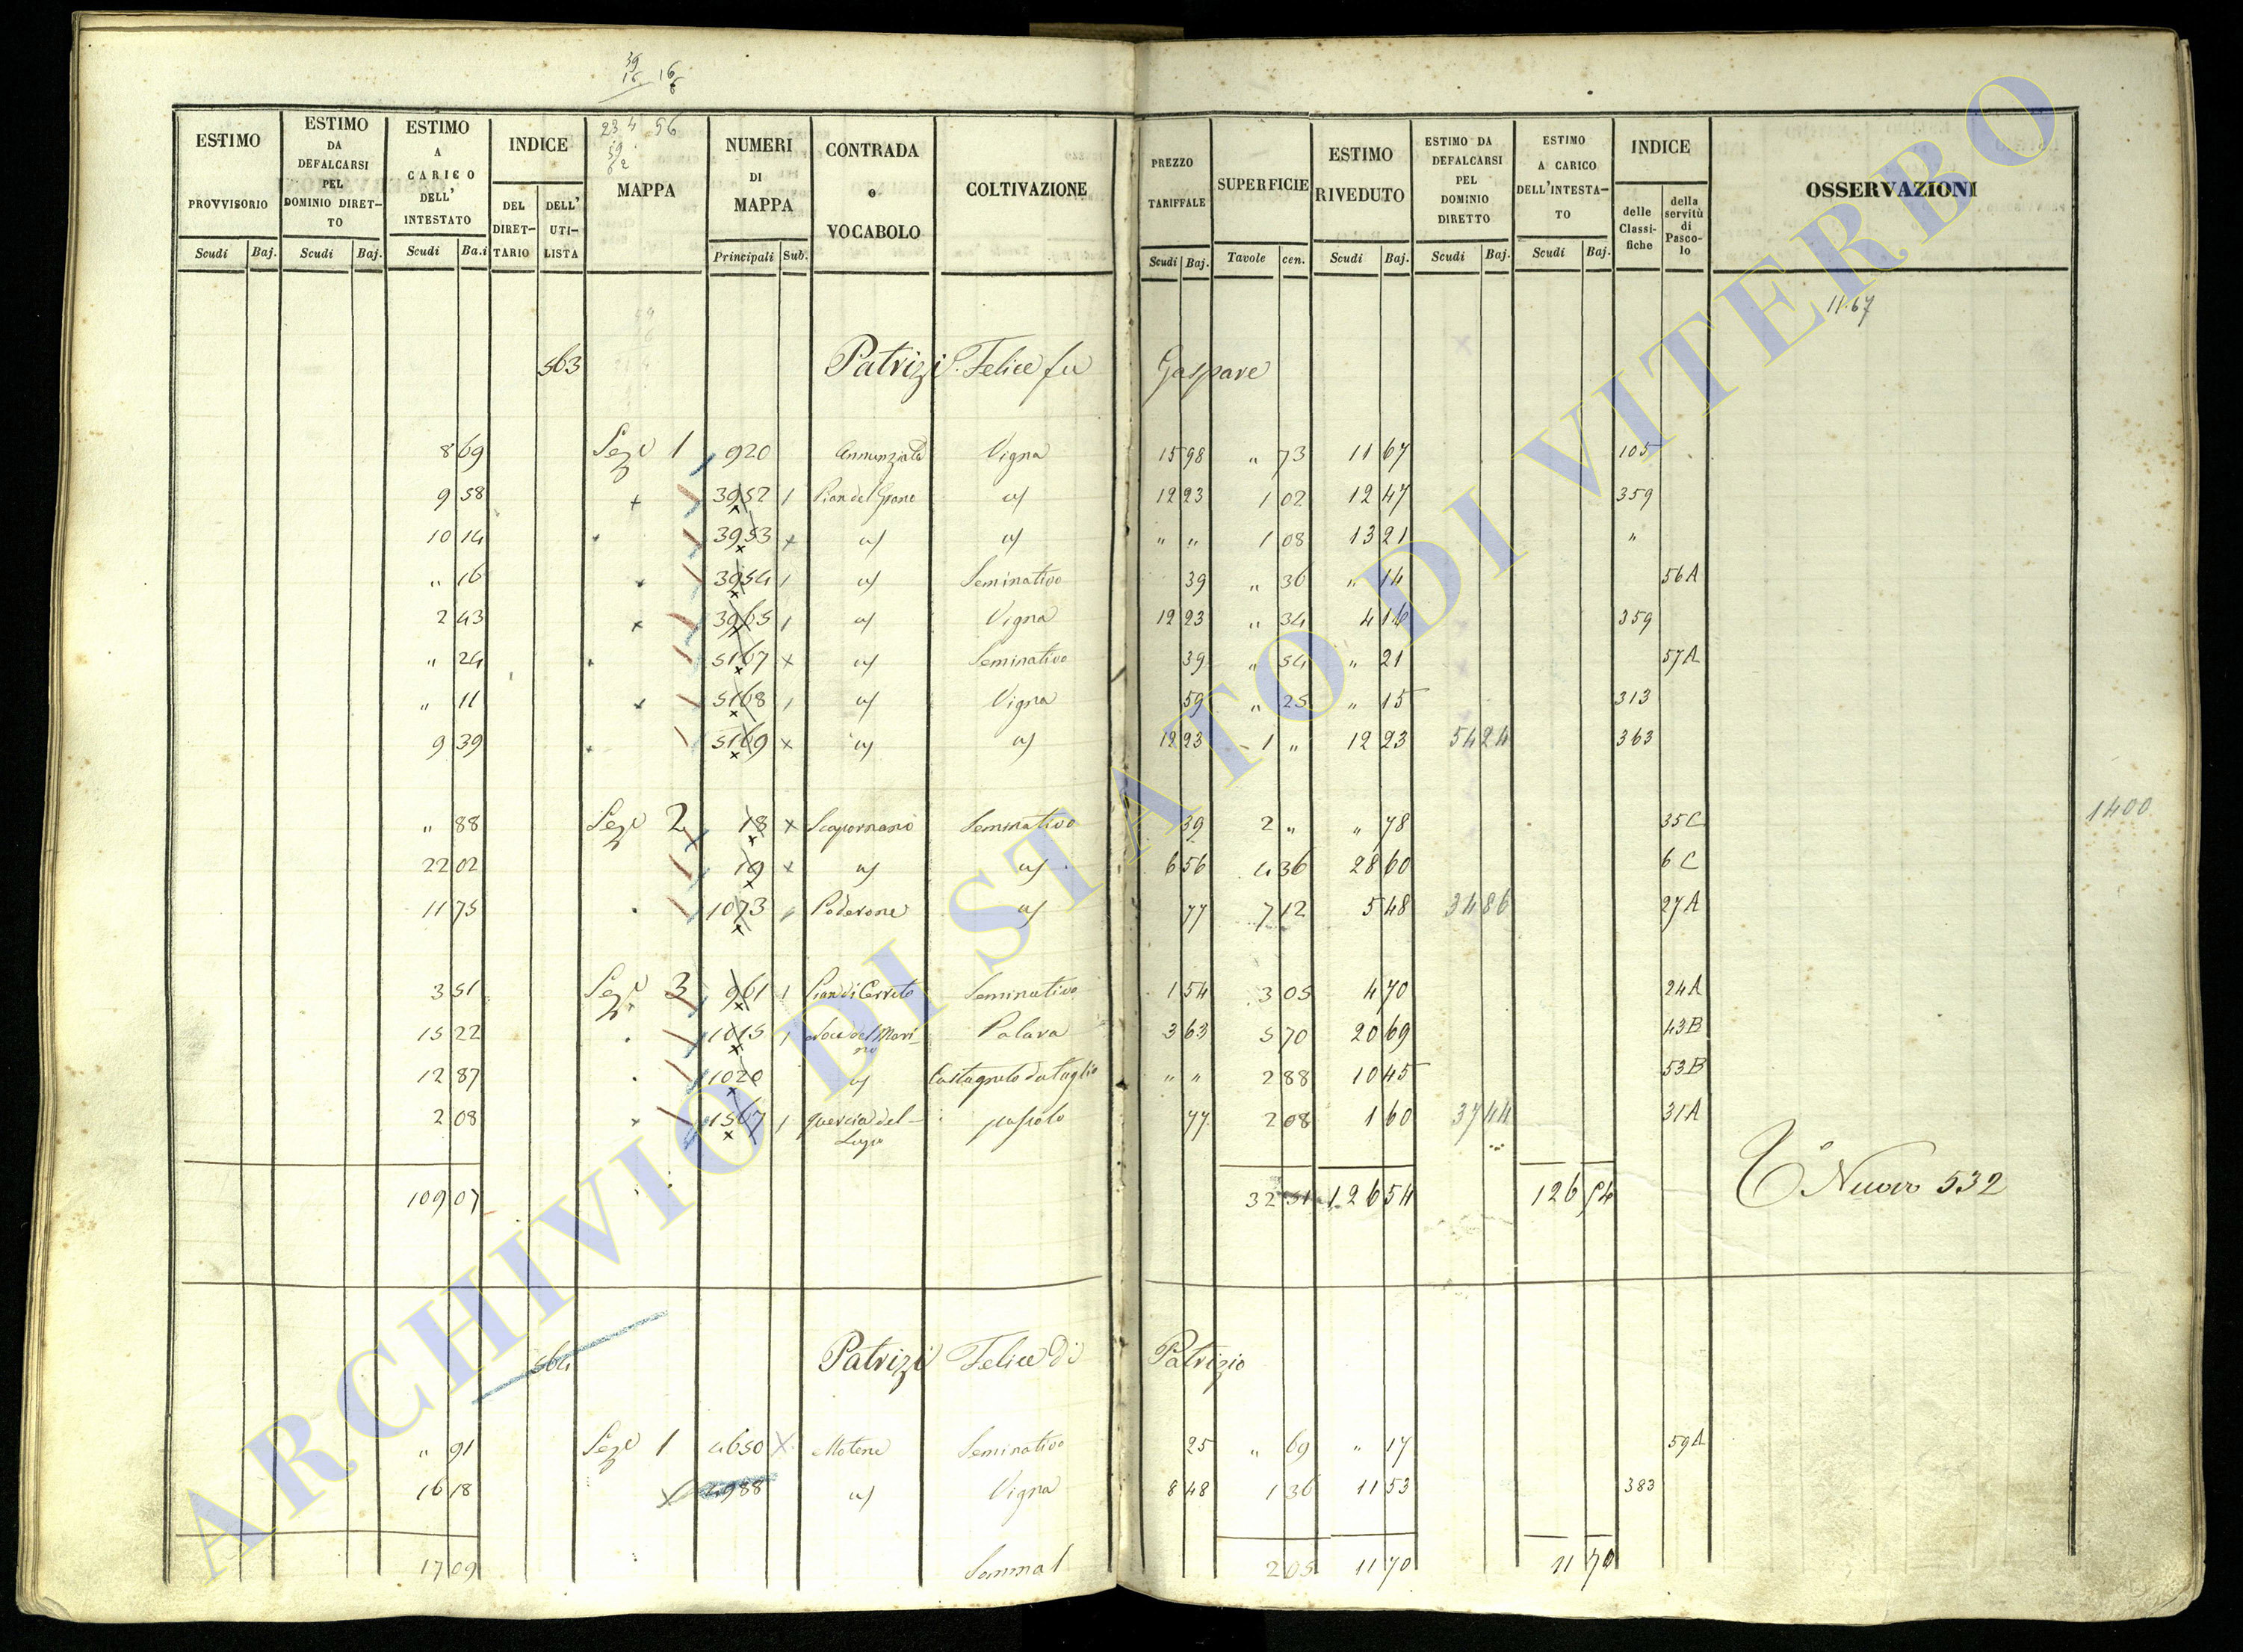 39
16 16
6
ESTIMO PROVVISORIO
ESTIMO DA DEFALCARSI PEL DOMINIO DIRET-TO
ESTIMO A CARICO DELL' INTESTATO
INDICE
DEL DIRET-TARIO
DELL' UTI-LISTA
23 4 56
MAPPA
NUMERI DI MAPPA
CONTRADA o VOCABOLO
COLTIVAZIONE
PREZZO TARIFFALE
SUPERFICIE
ESTIMO RIVEDUTO
ESTIMO DA DEFALCARSI PEL DOMINIO DIRETTO
ESTIMO A CARICO DELL'INTESTA-TO
INDICE
delle Classi-fiche
della servitù di Pasco-lo
OSSERVAZIONI
Scudi Baj. Scudi Baj. Scudi Ba.i Principali Sub. Scudi Baj. Tavole cen. Scudi Baj. Scudi Baj. Scudi Baj.
11.67
563 Patrizi Felice fu Gaspare
8 69 Sez. 1 920 Annunziata Vigna 15 98 " 73 11 67 105
9 58 3952 1 Pian del Grano a/ 12 23 1 02 12 47 359
10 14 3953 x a/ a/ " " 1 08 13 21 "
" 16 3954 1 a/ Seminativo 39 " 36 " 14 56A
2 43 3965 1 a/ Vigna 12 23 " 34 4 16 359
" 24 5167 x a/ Seminativo 39 " 54 " 21 57A
" 11 5168 1 a/ Vigna 59 " 25 " 15 313
9 39 5169 x a/ a/ 12 23 1 " 12 23 54 24 363
" 88 Sez. 2 18 x Seminativo 39 2 " " 78 35C
1400
22 02 19 x a/ a/ 6 56 4 36 28 60 6 C
11 75 1073 Poderone a/ 77 7 12 5 48 34 86 27A
3 51 Sez. 3 961 1 Pian di Cerreto Seminativo 1 54 3 05 4 70 24A
15 22 1015 1 Palara 3 63 5 70 20 69 43B
12 87 1020 a/ Castagneto da taglio " " 2 88 10 45 53B
2 08 1567 1 Quercia del- pascolo 77 2 08 1 60 37 44 31A
109 07 32 51 126 54 126 54
To Nuovo 532
564 Patrizi Felice di Patrizio
" 91 Sez. 1 4650 x Motene Seminativo 25 " 69 " 17 59A
16 18 4988 a/ Vigna 8 48 1 36 11 53 383
17 09 2 05 11 70 11 70
ARCHIVIO DI STATO DI VITERBO